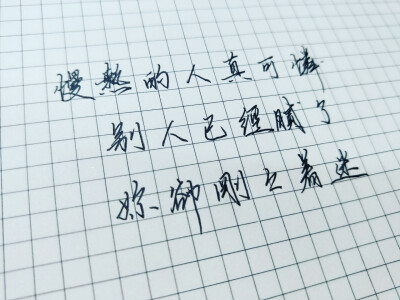 慢熱的人真可憐
别人已經膩了
妳卻剛〻着迷